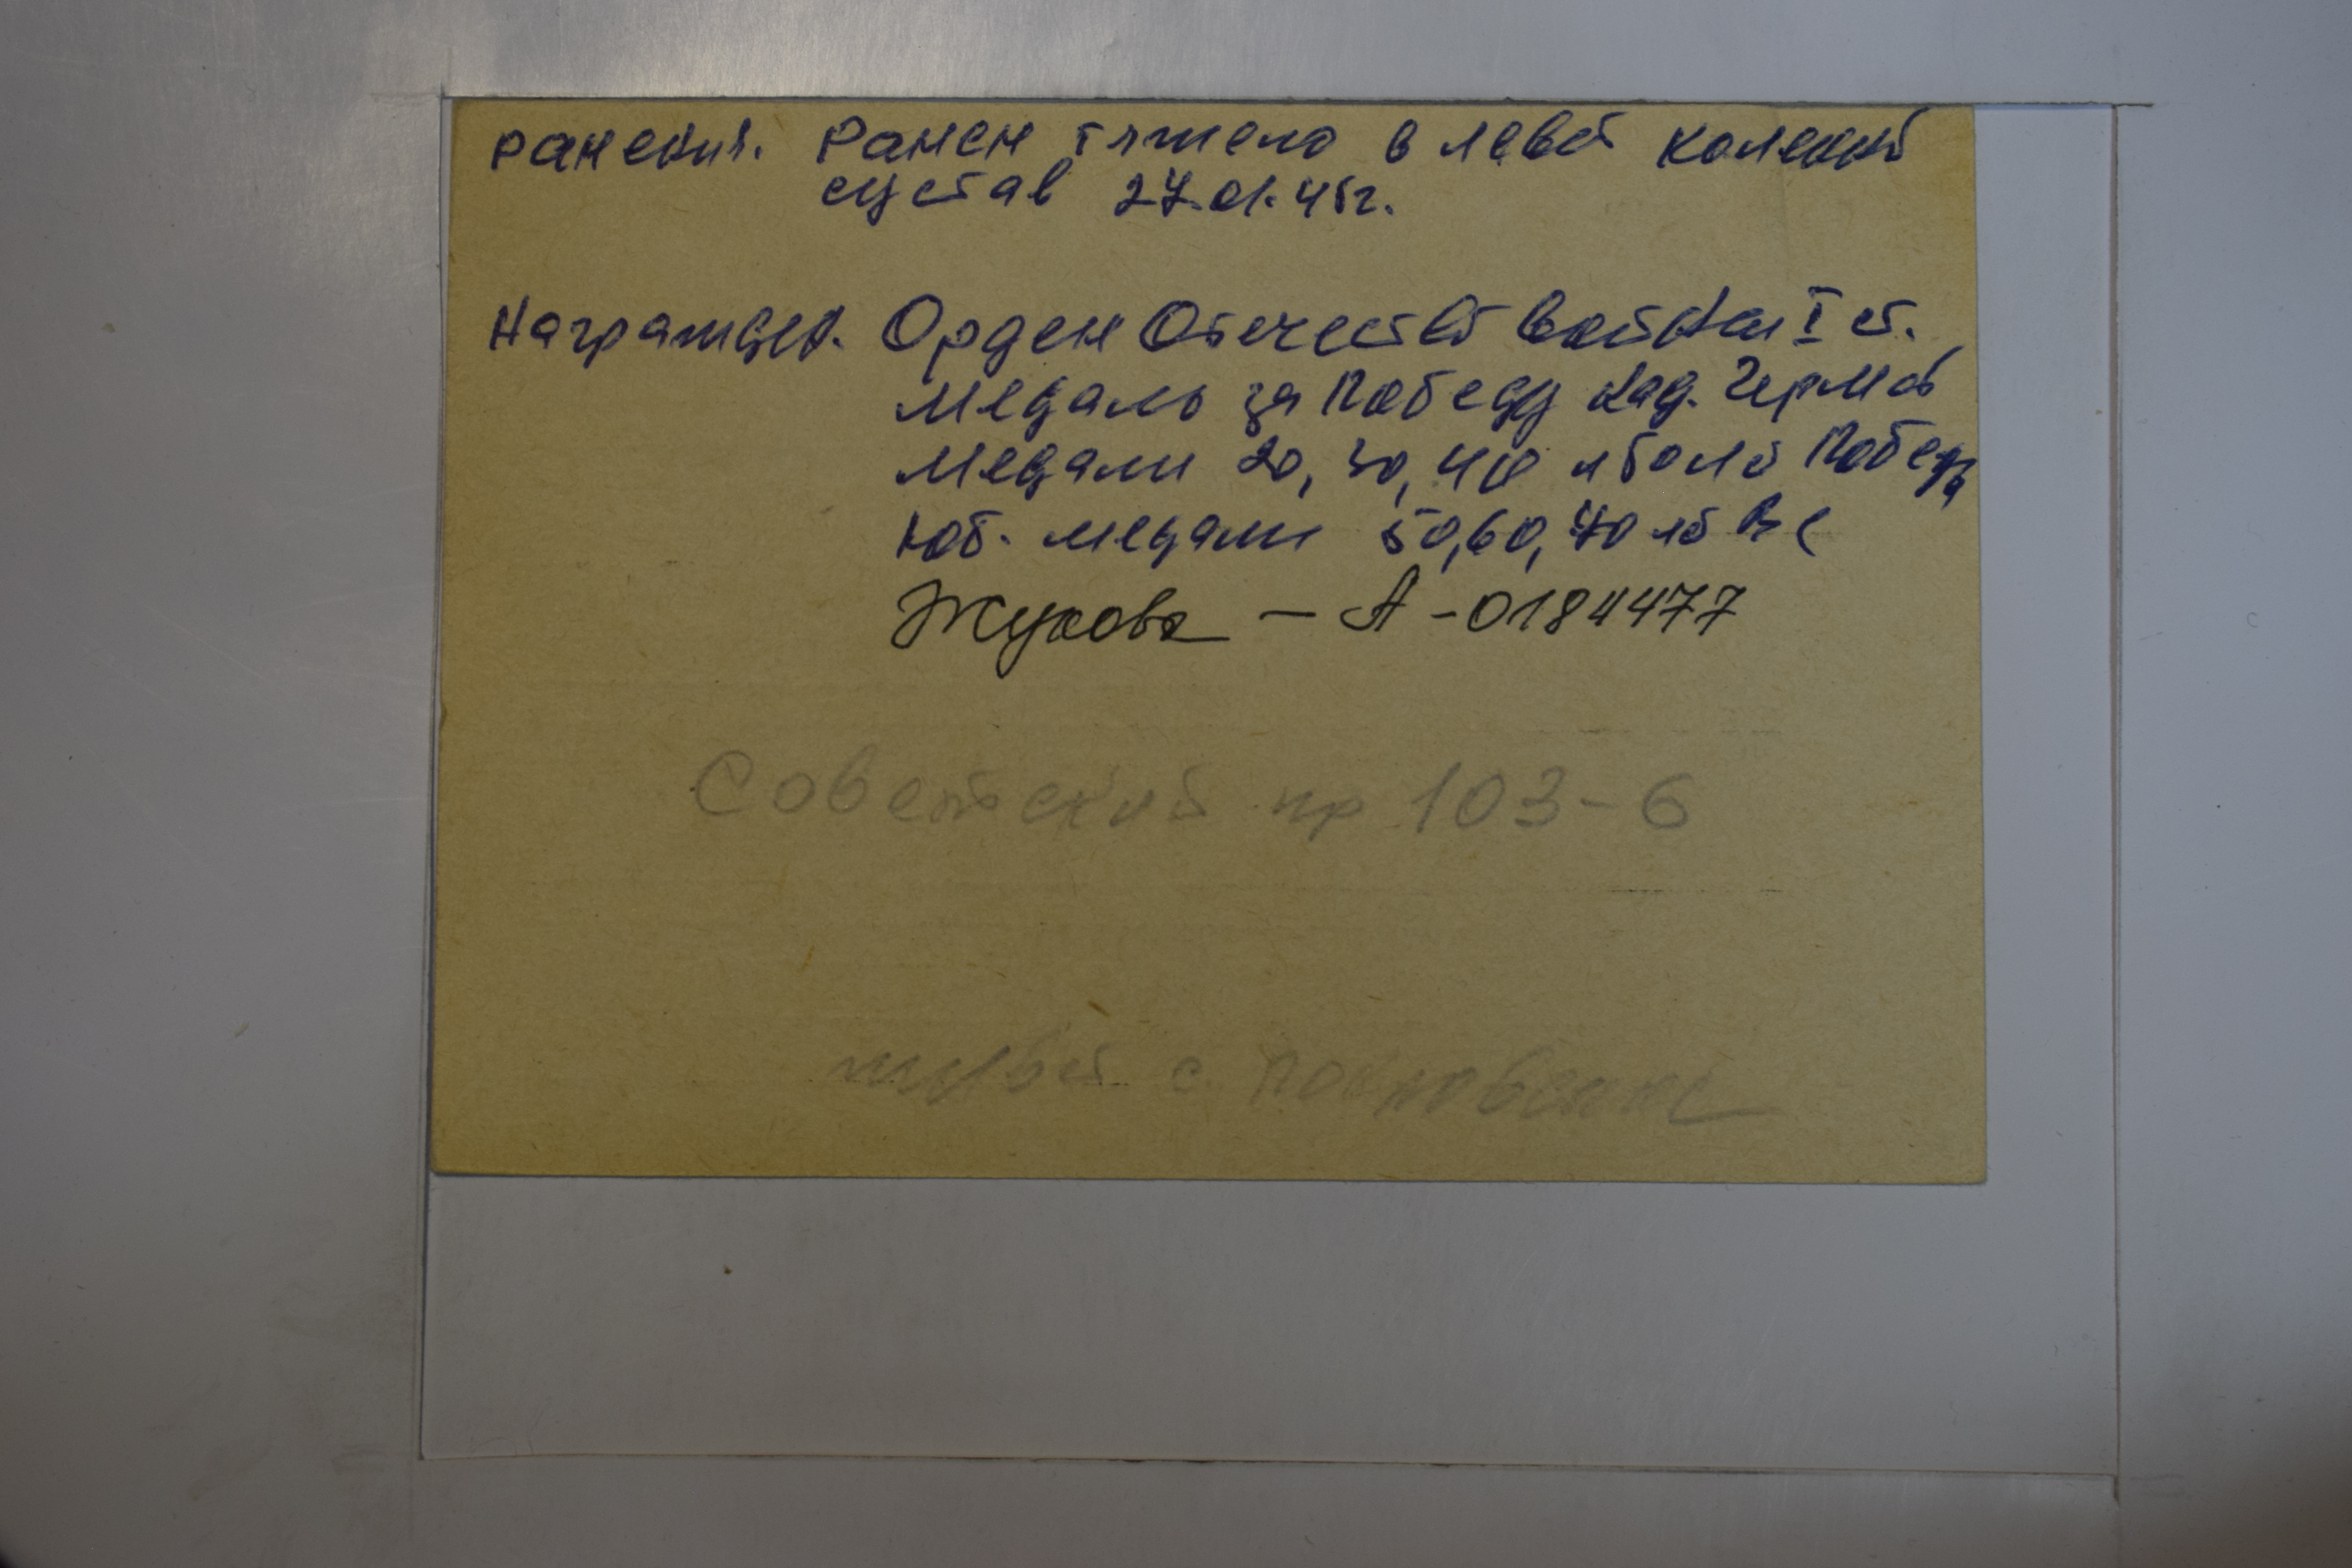 Ранения. Ранен тяжело в левый коленный
сустав 27.01.45г.
Награжден. Орден Отечеств войны I ст.
Медаль за Победу над. Герм
Медали 20, 30, 40 лет Победы
Юб. медали 50, 60, 70 лет ВС
Жукова – А-0184477
Советский пр 103-6
живет с